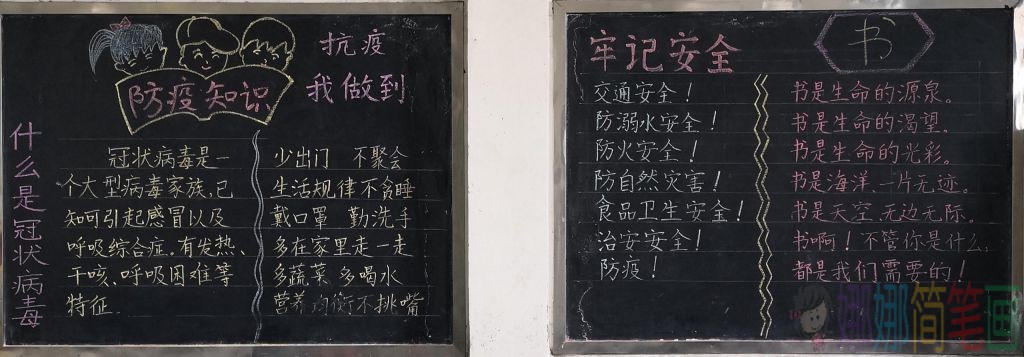 防疫知识
抗疫
我做到
什么是冠状病毒
冠状病毒是一
个大型病毒家族,已
知可引起感冒以及
呼吸综合症.有发热、
干咳、呼吸困难等
特征.
少出门 不聚会
生活规律不贪睡
戴口罩 勤洗手
多在家里走一走
多蔬菜 多喝水
营养均衡不挑嘴
牢记安全
交通安全!
防溺水安全!
防火安全!
防自然灾害!
食品卫生安全!
治安安全!
防疫!
书
书是生命的源泉。
书是生命的渴望。
书是生命的光彩。
书是海洋、一片无迹。
书是天空、无边无际。
书啊!不管你是什么,
都是我们需要的!
娜娜简笔画